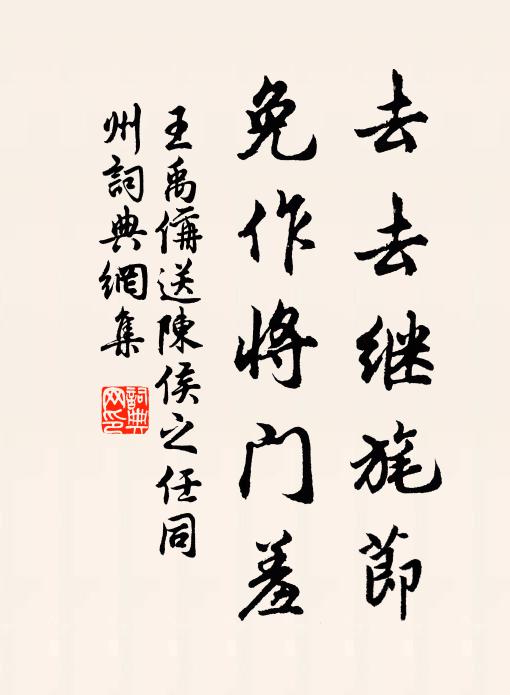 去去继旄節
免作将门羞
王禹偁送陳侯之任同
州詞典網集
詞典
网印